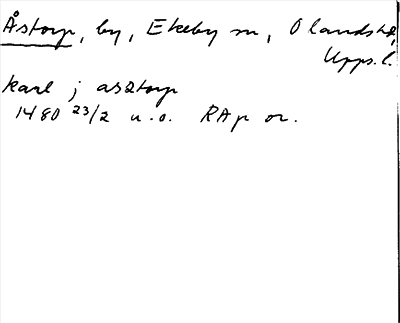 Åstorp, by, Ekeby sn, Olandshd,
Upps.l.
karl j asztorp
1480 23/2 u.o. RAp or.